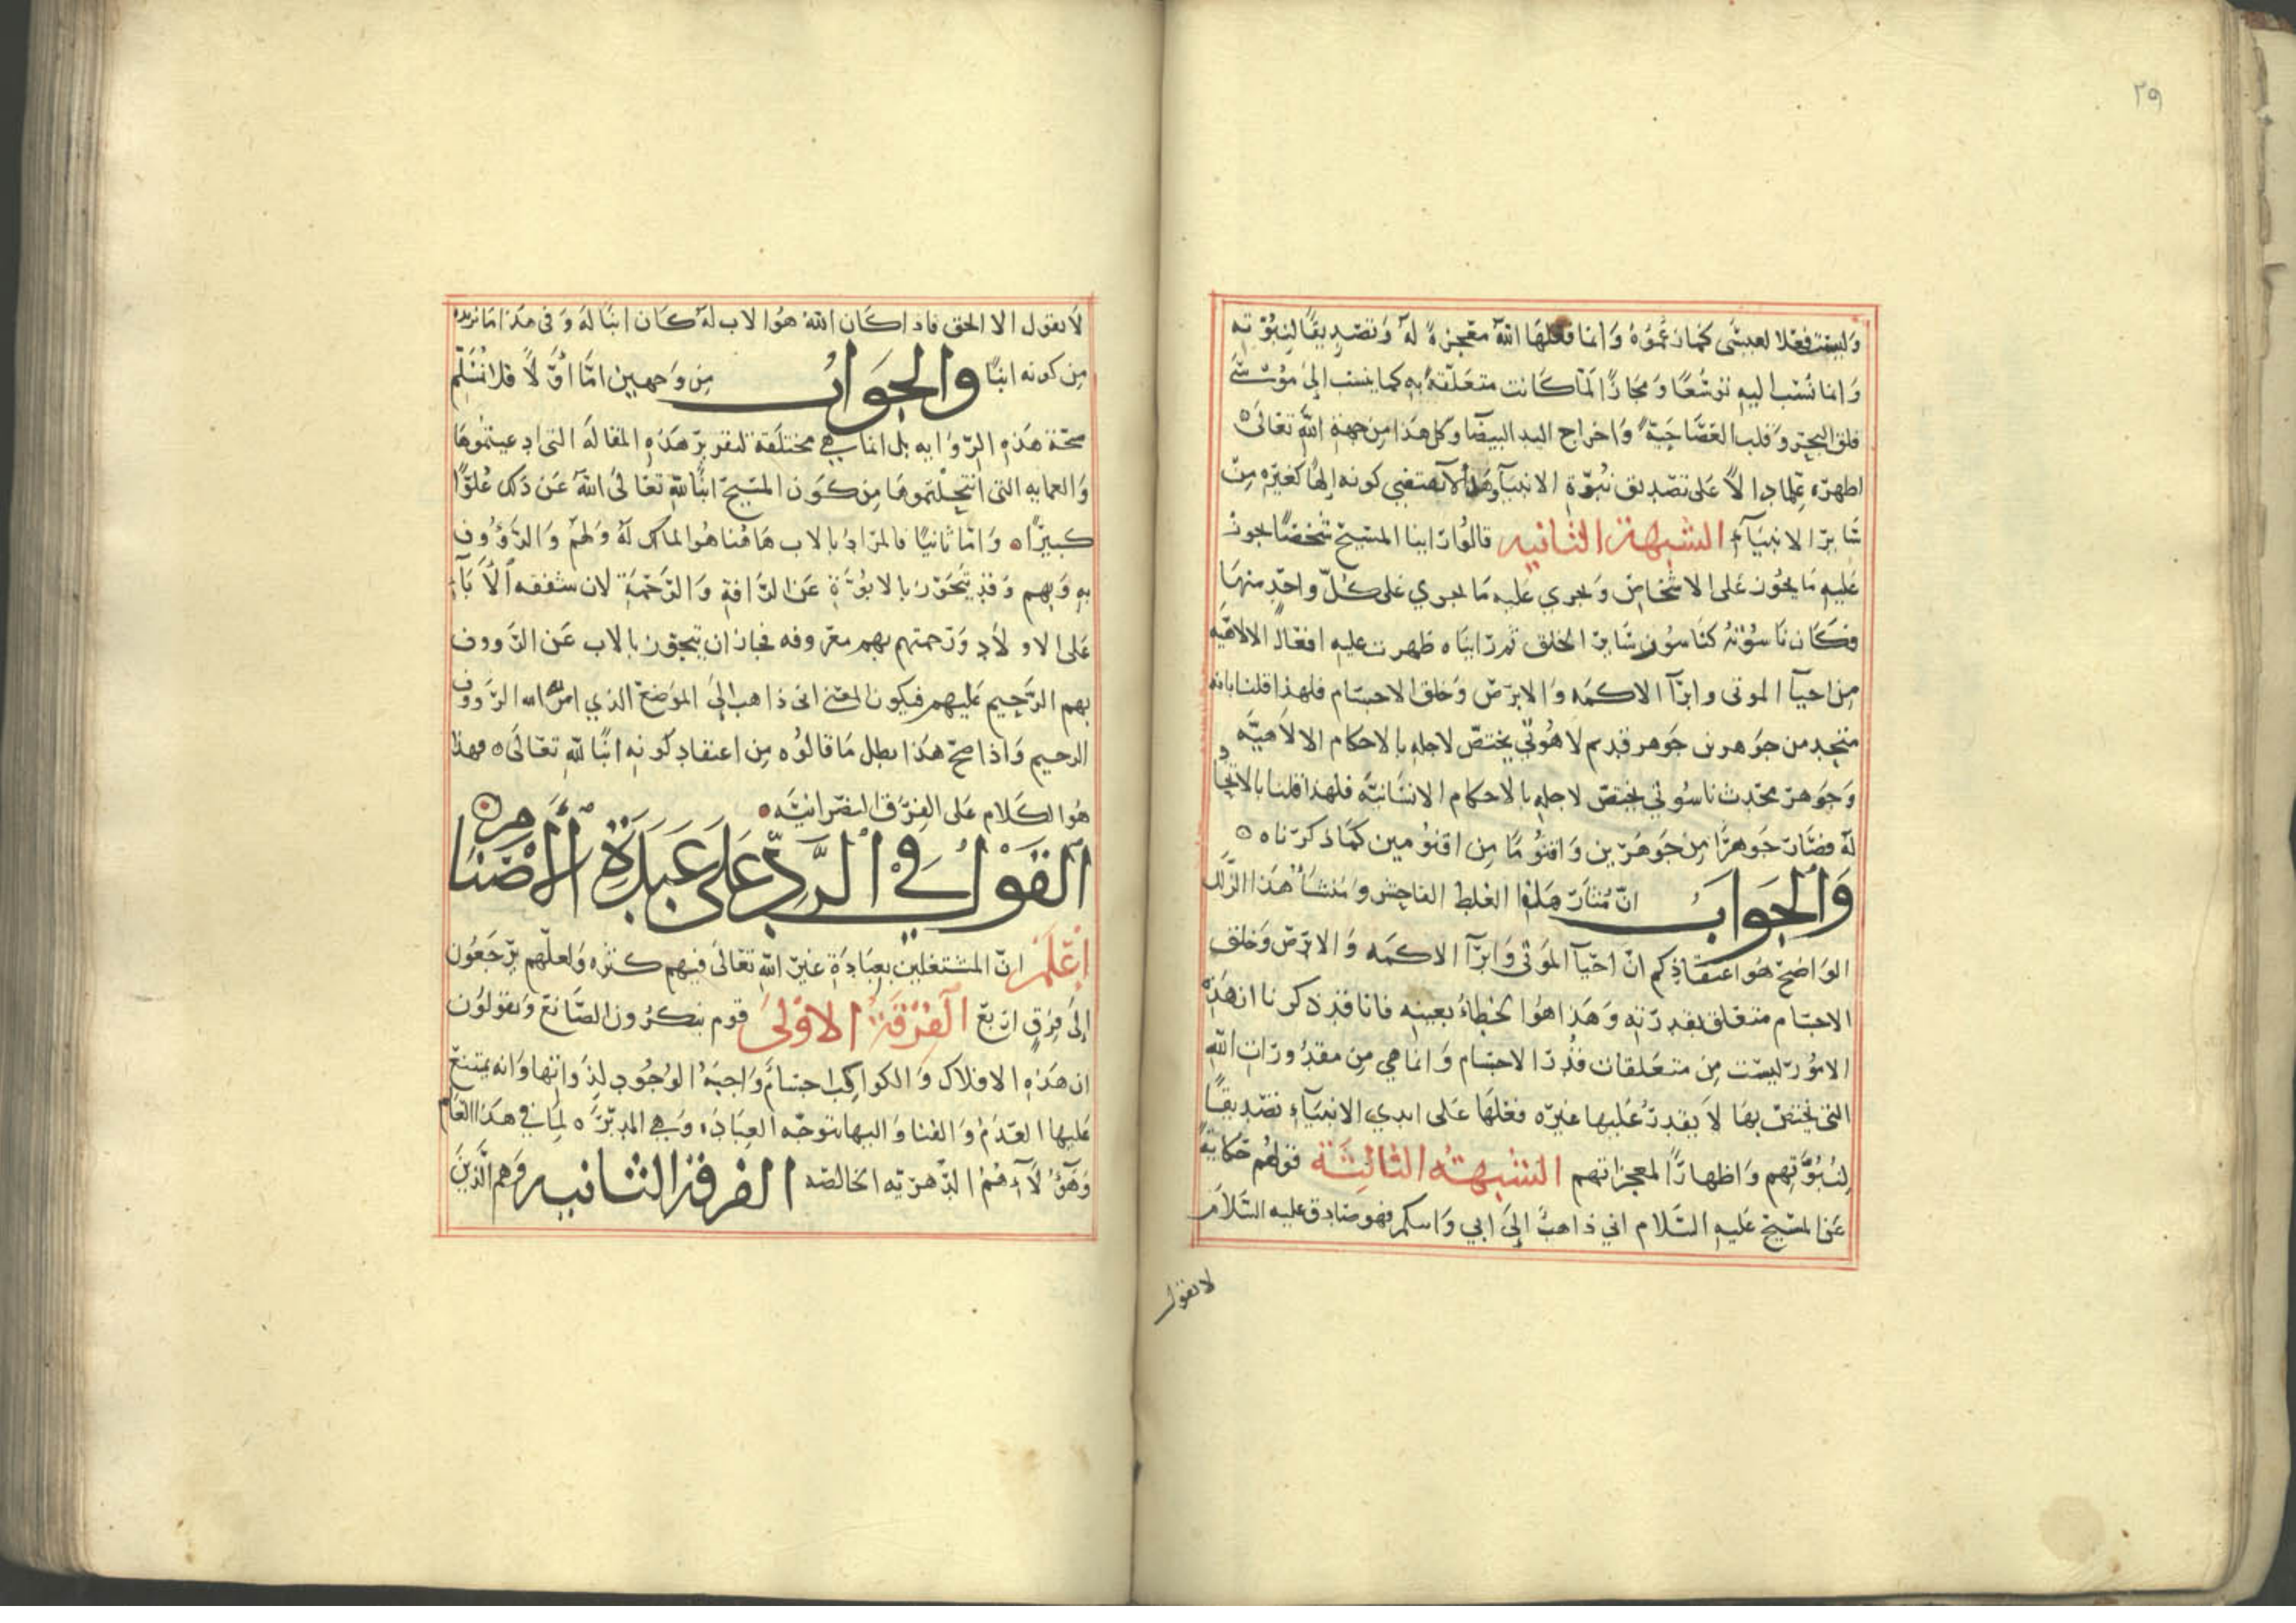 ٢٩
وَليست فعلا لعيسَى كما زعموُهُ وَانما فعلهَا اللهُ معجزةً لهُ وَتصديقًا لنبوّته
وَانما نُسب اليهِ توسّعًا وَمجازًا لمّا كانت متعلقةً بهِ كما ينسب إلى موُسَى
فلق البحر وَقلب العَصَا حيّةً وَاخراج اليد البيضا وكل هَذا من جهة اللهِ تعَالىَ ه
اظهره علمًا دالاً عَلى تصَديق نبوّة الانبيآ وهذا لا يقتضي كونه إلهًا كغيره مِن
سَاير الانبيَآء الشبهة الثانيه قالوُا رَاينا المسَيح شخصًا يجوز
عَليه مَا يجوُز عَلى الاشخاص وَيجري عَليه مَا يجري عَلى كلّ واحَدٍ منهَا
فكَان نَاسوُته كنَاسوُت سَاير الخلق ثم رَاينَاه ظهرت عليه افعَال الالاهيّه
مِن احيآ الموتى وابرَآ الاكمَه وَالابرَص وَخلق الاجسَام فلهذا قلنا بانه
متحد من جوَهرين جَوهر قديم لاهُوتي يختصّ لاجله بالاحكام الالاهيَّه
وَجَوهر محَدث ناسوُتي يختصّ لاجله بالاحكام الانسَانيَّه فلهذا قلنا بالاتحاد
لهُ فصَار جَوهرًا مِن جَوهَرين وَاقنوُمًا مِن اقنوُمين كمَا ذكرناه ه
وَالجَوابُ انّ مُثار هَذا الغلط الفاحِش وَمنشَأ هَذا الزّلل
الوَاضِح هُو اعتقَادكم انّ احيَآ الموَتى وَابرَآ الاكمَه وَالابرَص وَخلق
الاجسَام متعَلق بقدرته وَهَذا هوُ الخطاءُ بعينه فانا قد ذكرنا ان هَذه
الامُور ليسَت مِن متعَلقات قُدر الاجسَام وَانما هي مِن مقدُورَات اللهِ
التى يختصّ بهَا لاَ يقدرُ عَليها غيره فعَلهَا عَلى ايدي الانبيَآء تصَديقًا
لنبُوّتهم وَاظهارًا لمعجزاتهم الشبهَةُ الثالثة قولهُم حَكايةً
عَن المسَيح عَليه السَلام اني ذاهبٌ إلىَ ابي وَابيكم فهو صَادق عليه السَلامُ
لا يقول
لاَ يقول الا الحق فاذا كَان اللهُ هوُ الاب لهُ كَان ابنًا لهُ وَفى هَذا مَا نريده
مِن كونه ابنًا وَالجوَابُ مِن وَجهين امَّا اوَّلاً فلا نسُلّم
صحّة هَذهِ الرّوَايه بل انما هي مختلَقة لتقرير هَذهِ المقالَة التى ادعيتموُهَا
وَالعمايه التى انتحلتموهَا مِن كوَن المسَيح ابنًا للهِ تعَالىُ اللهُ عَن ذَلك عُلوًّا
كبيرًا ه وَامّا ثانيًا فالمرَادُ بالاب هَاهُنا هوُ المالك لهُ وَلهُم وَالرَّؤُوف
بهِ وَبهم وَقد يتجَوّز بالابوُّةِ عَن الرَّافةِ وَالرَّحمَةِ لان شفقه الاَبآء
عَلى الاولاَد وَرَحمتهم بهم معَروفه فجاز ان يتجوّز بالاب عَن الرَّووف
بهم الرَّحيم عَليهم فيكون المعَنى انى ذاهب الىَ الموَضع الذي امر الله الرّووف
الرحيم وَاذا صَحّ هَذا بطل مَا قالوُه مِن اعتقاد كونهِ ابنًا للهِ تعَالىَ ه فهذا
هوُ الكَلام عَلى الفِرَق النصرَانيّه ه
اَلقوَلُ فيِ الرَّدِّ عَلىَ عَبَدَةِ الأَصْنَامِ
اعْلَمْ انّ المشتغلين بعبَادةِ غير اللهِ تعَالىَ فيهم كثره وَلعلّهم يرَجعوُن
إلىَ فِرَقٍ اربَع الفرَقةُ الاوُلىَ قوم ينكرُون الصَّانعَ وَيقولوُن
ان هَذهِ الافلاك وَالكواكب اجسَامٌ وَاجبَةُ الوُجوُد لذَواتها وَانه يمتنع
عَليها العَدَمُ وَالفنا وَاليها تتوجّه العبَادَه وَهي المدبرَّه لمَا في هَذا العَالم
وَهَؤُلآءِ همُ الدّهرَيّه الخالصَه الفرقة الثانيه وَهم الّذينَ